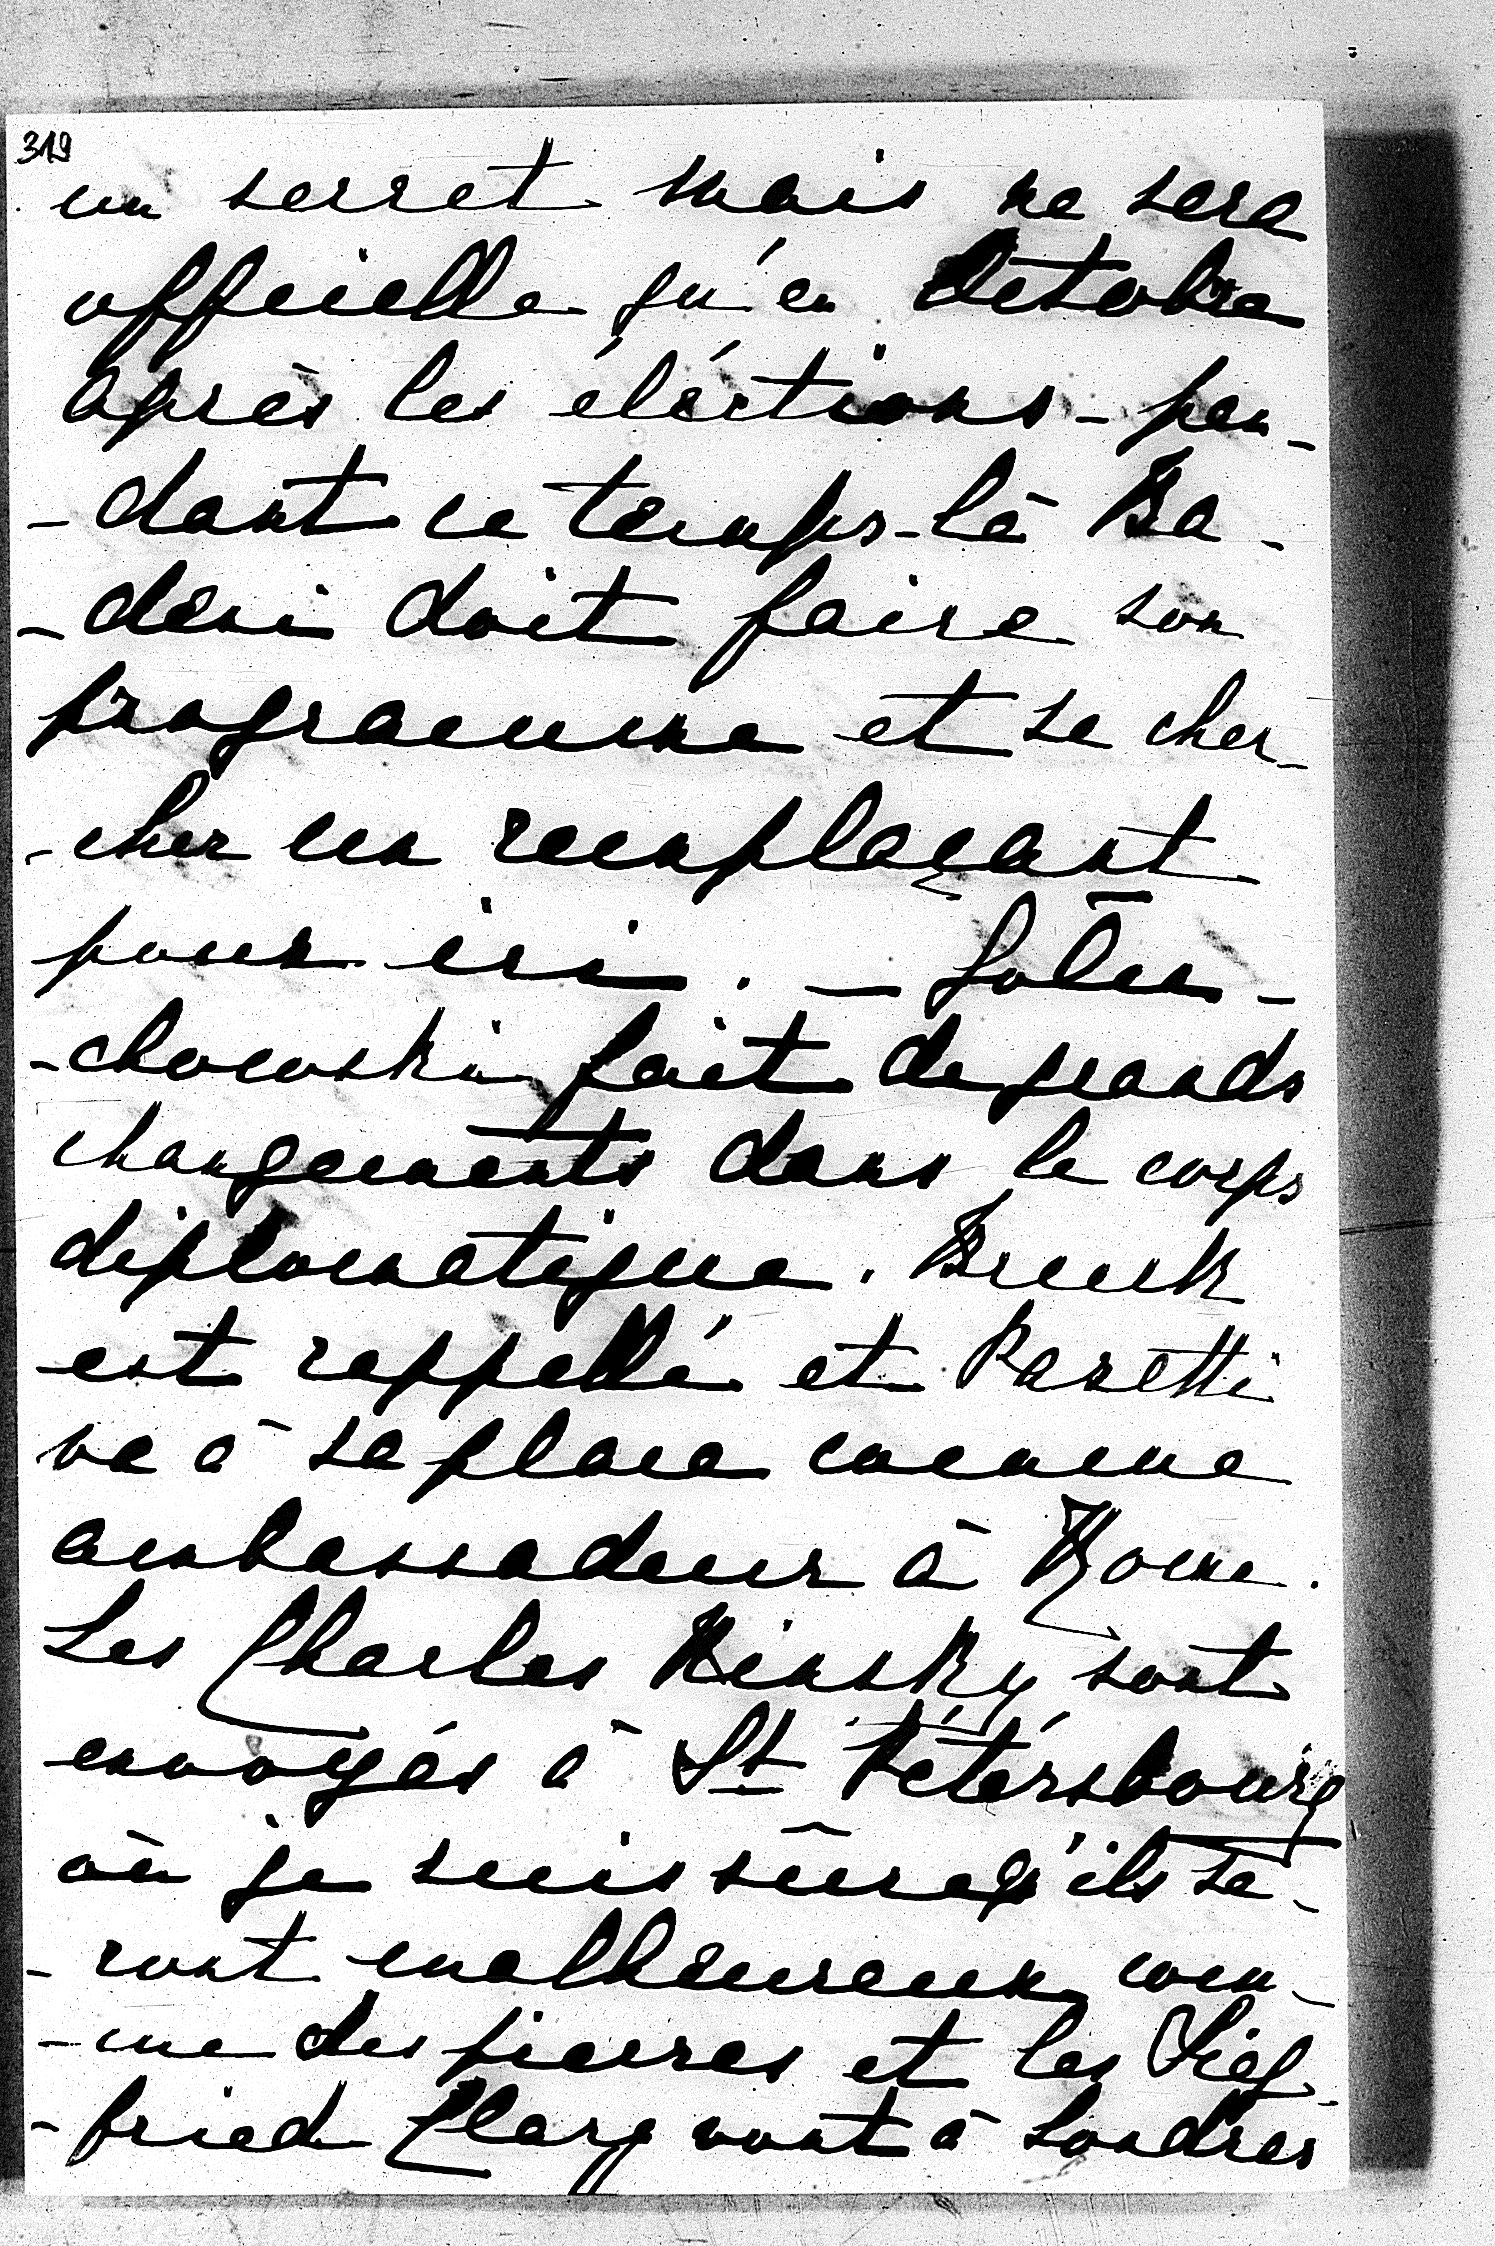 319
un secret mais ne sera
officielle qu'en Octobre
après les éléctions - pen-
-dant ce temps-là Ba-
-deni doit faire son
programme et se cher-
-cher un remplaçant
pour ici. - Golu-
-chowski fait de grands
changements dans le corps
diplomatique. Bruck
est rappellé et Pasetti
va à sa place comme
ambassadeur à Rome.
Les Charles Kinsky sont
envoyés à St Pétérsbourg
où je suis sûre qu'ils se-
-ront malheureux com-
-me des pierres et les Sieg-
-fried Clary vont à Londres